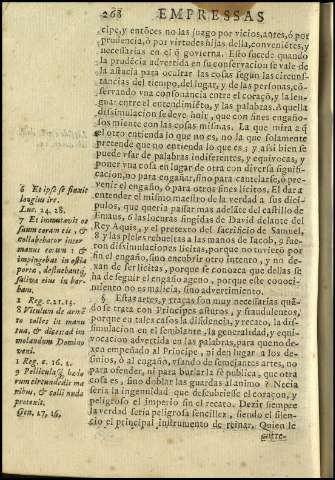 268 EMPRESSAS
cipe, y entõces no las juzgo por vicios, antes, ó por
prudencia, ó por virtudes hijas della, conveniẽtes, y
necessarias en el q̃ govierna. Esto sucede quando
la prudẽcia advertida en su conservacion se vale de
la astucia para ocultar las cosas según las circunstancias
del tiempo, del lugar, y de las personas, cõ-
servando vna consonancia entre el coraçõ, y la len-
gua: entre el entendimiẽto, y las palabras. Aquella
dissimulacion se deve huir, que con fines engaño-
sos miente con las cosas mismas. La que mira a q̃
el otro entienda lo que no es, no la que solamente
pretende que no entienda lo que es; y assi bien se
puede vsar de palabras indiferentes, y equivocas, y
poner vna cosa en lugar de otra con diversa signifi-
cacion, no para engañar, sino para cautelarse, ò pre-
venir el engaño, ó para otros fines licitos. El dar a
entender el mismo maestro de la verdad a sus dici-
pulos, que queria passar mas adelãte del castillo de
Emaus, 6 las locuras fingidas de David delante del
Rey Aquis, y el pretexto del sacrificio de Samuel,
8 y las pieles rebueltas a las manos de Iacob, 9 fue-
ron dissimulaciones licitas, porque no tuvieron por
fin el engaño, sino encubrir otro intento, y no de-
xan de ser licitas, porque se conozca que dellas se
ha de seguir el engaño ageno, porque este conoci-
miento no es malicia, sino advertimiento.
§ Estas artes, y traças son muy necessarias quã-
do se trata con Principes astutos, y fraudulentos,
porque en tales casos la difidencia, y recato, la dis-
simulacion en el semblante, la generalidad, y equi-
vocacion advertida en las palabras, para que no de-
xen empeñado al Principe, ni den lugar a los de-
signios, ò al engaño, vsando de semejantes artes, no
para ofender, ni para burlar la fè publica, que otra
cosa es, sino doblar las guardas al animo? Necia
seria la ingenuidad que descubriesse el coraçon, y
peligroso el Imperio sin el recato. Dezir siempre
la verdad seria peligrosa sencillez, siendo el silen-
cio el principal instrumento de reinar. Quien le
entre-
6 Et ipse se finxit
longius ire.
Luc. 24. 28.
7 Et inmutavit os
suum coram eis, &
collabebatur inter
manus eorum: &
impingebat in ostia
portæ, defluebantq̃;
salivæ eius in bar-
bam.
1 Reg. c. 21. 13.
8 Vitulum de armẽ
to tolles in manu
tua, & dices ad im-
molandum Domino
veni.
1 Reg. c. 16. 2.
9 Pelliculasq̃; hædo
rum circundedit ma
nibus, & colli nuda
protexit.
Gen. 27. 16.